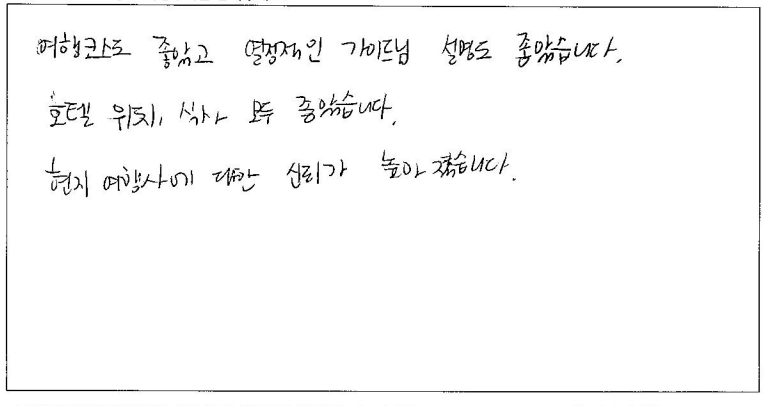 여행코스도 좋았고 열정적인 가이드님 설명도 좋았습니다.
호텔 위치, 식사 모두 좋았습니다.
현지 여행사에 대한 신뢰가 높아졌습니다.